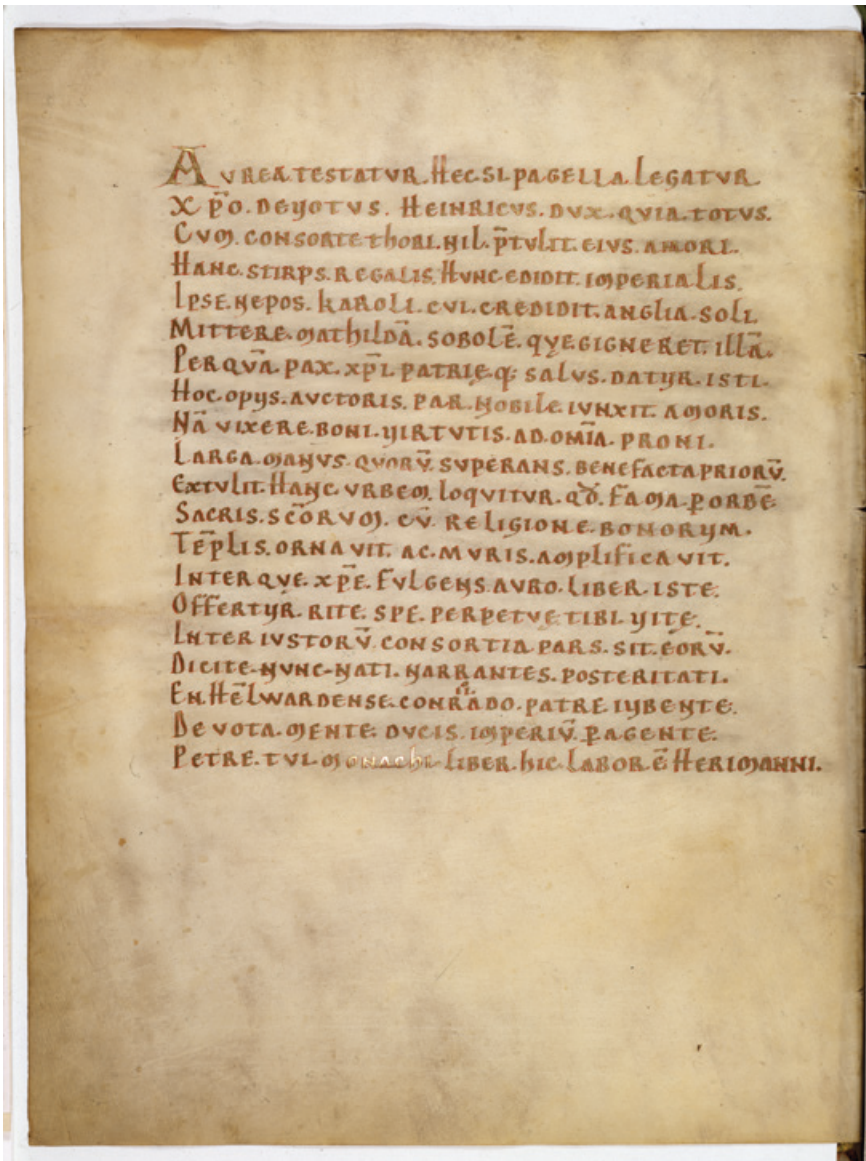 AVREA.TESTATVR.HEC.SI.PAGELLA.LEGATVR.
XP̄O.DEVOTVS.HEINRICVS.DVX.QVIA.TOTVS.
CVM.CONSORTE THORI.NIL.P̄TVLIT.EIVS.AMORI.
HANC.STIRPS.REGALIS.HVNC EDIDIT.IMPERIALIS.
IPSE.NEPOS.KAROLI.CVI.CREDIDIT.ANGLIA.SOLI
MITTERE.MATHILDĀ.SOBOLĒ.QVE GIGNERET.ILLĀ.
PER QVĀ.PAX.XP̄I.PATRIĘ.Q; SALVS.DATVR.ISTI.
HOC.OPVS.AVCTORIS.PAR.NOBILE.IVNXIT.AMORIS.
NĀ VIXERE.BONI.VIRTVTIS.AD.OM̄IA.PRONI.
LARGA.MANVS.QVORV̄.SVPERANS.BENEFACTA PRIORV̄.
EXTVLIT.HANC.VRBEM.LOQVITVR.QD̄.FAMA.P̱ORBĒ
SACRIS.SC̄ORVM.CV̄ RELIGIONE.BONORVM.
TĒPLIS.ORNAVIT.AC.MVRIS.AMPLIFICAVIT.
INTER QVE.XP̄E.FVLGENS.AVRO.LIBER.ISTE.
OFFERTVR.RITE.SPE.PERPETVE TIBI.VITE.
INTER IVSTORV̄ CONSORTIA.PARS.SIT.EORV̄.
DICITE.NVNC.NATI.NARRANTES.POSTERITATI.
EN.HELWARDENSE.CONRADO.PATRE IVBENTE.
DEVOTA.MENTE.DVCIS.IMPERIV̄.P̱AGENTE.
PETRE.TVI.MONACHI.LIBER.HIC.LABOR Ē HERIMANNI.